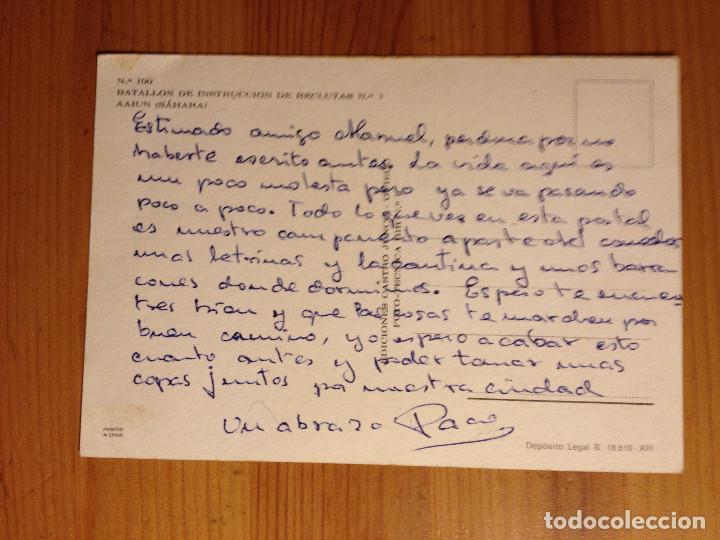 N.º 100
BATALLON DE INSTRUCCION DE RECLUTAS N.º 1
AAIUN (SÁHARA)
Estimado amigo Manuel, perdona por no
haberte escrito antes. La vida aquí es
un poco molesta pero ya se va pasando
poco a poco. Todo lo que ves en esta postal
es nuestro campamento aparte del comedor
unas letrinas y la cantina y unos barra
cones donde dormimos. Espero te encuen
tres bien y que las cosas te marchen por
buen camino, yo espero acabar esto
cuanto antes y poder tomar unas
copas juntos por nuestra ciudad
Un abrazo Paco
EDICIONES CASTRO
FOTO-TECNICA
PRINTED
IN SPAIN
Depósito Legal B. 18.810-XIII
todocoleccion
todocoleccion.net